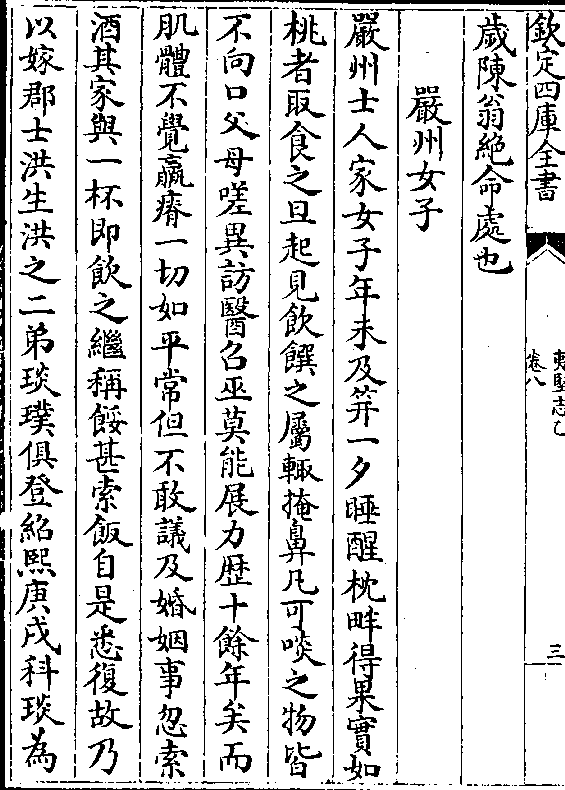 欽定四庫全書
夷堅志乙
卷八
三
歲陳翁絶命處也
嚴州女子
嚴州士人家女子年未及笄一夕睡醒枕畔得果實如
桃者取食之旦起見飲饌之屬輙掩鼻凡可啖之物皆
不向口父母嗟異訪醫召巫莫能展力歴十餘年矣而
肌體不覺羸瘠一切如平常但不敢議及婚姻事忽索
酒其家與一杯即飲之繼稱餒甚索飯自是悉復故乃
以嫁郡士洪生洪之二弟琰璞俱登紹熙庚戌科琰為